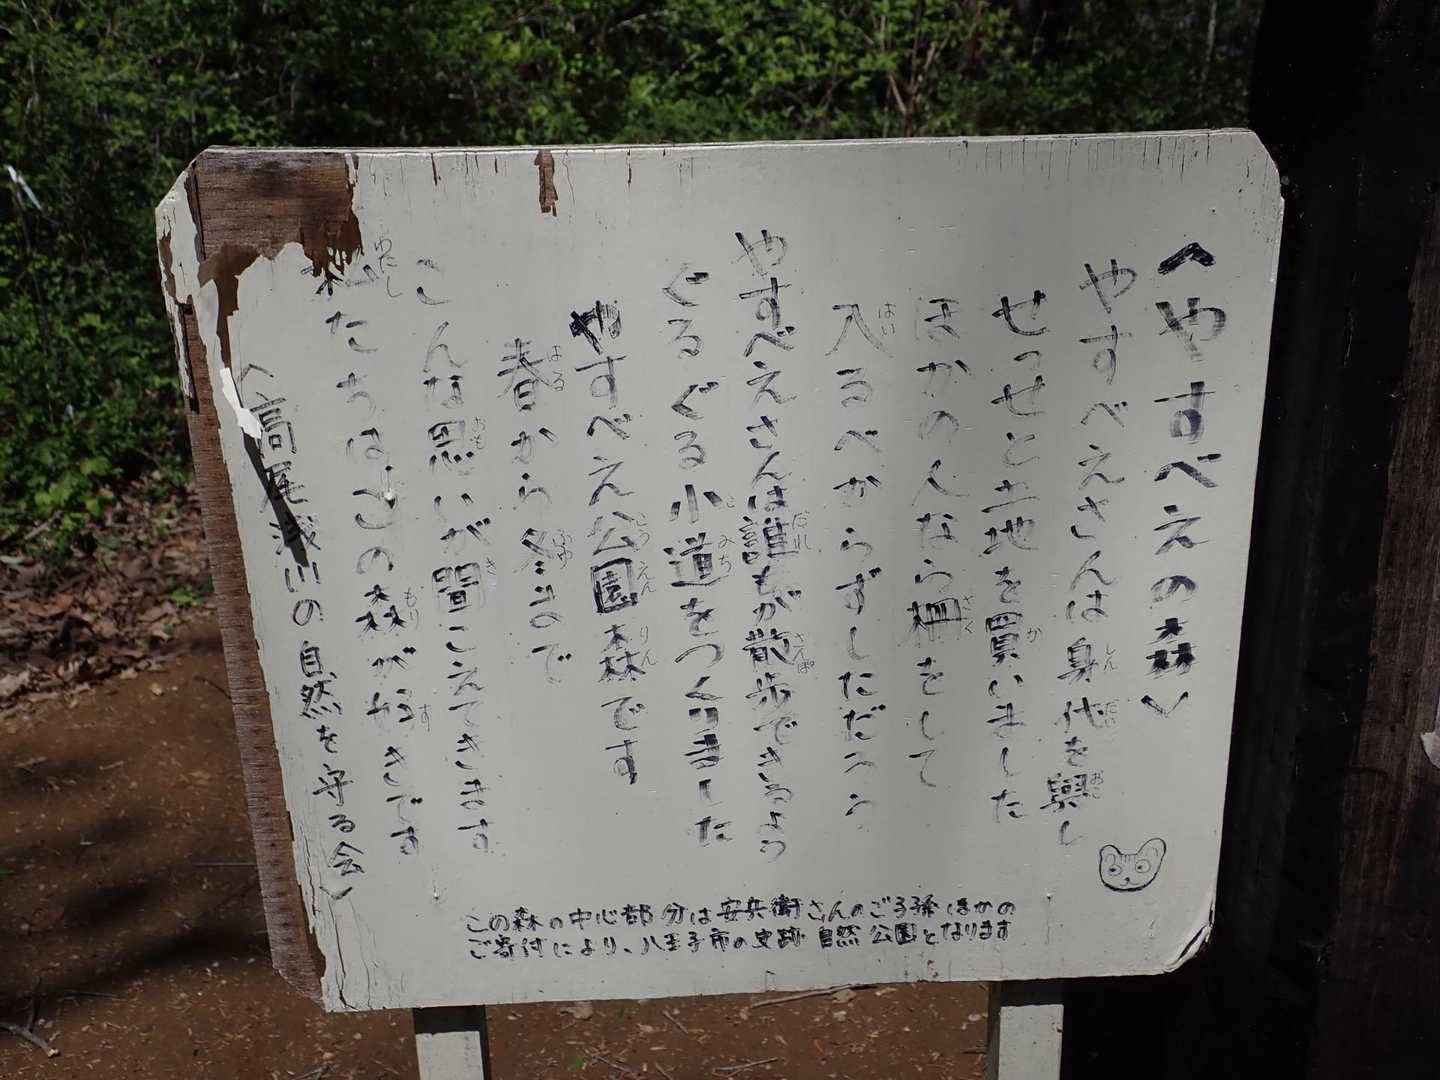 〈やすべえの森〉
やすべえさんは身代を興し
せっせと土地を買いました
ほかの人なら柵をして
入るべからずしただろう
やすべえさんは誰もが散歩できるよう
ぐるぐる小道をつくりました
やすべえ公園森です
春から冬まで
こんな思いが聞こえてきます
私たちは、この森が好きです
〈高尾浅川の自然を守る会〉
この森の中心部分は安兵衛さんのご子孫ほかの
ご寄付により、八王子市の史跡自然公園となります